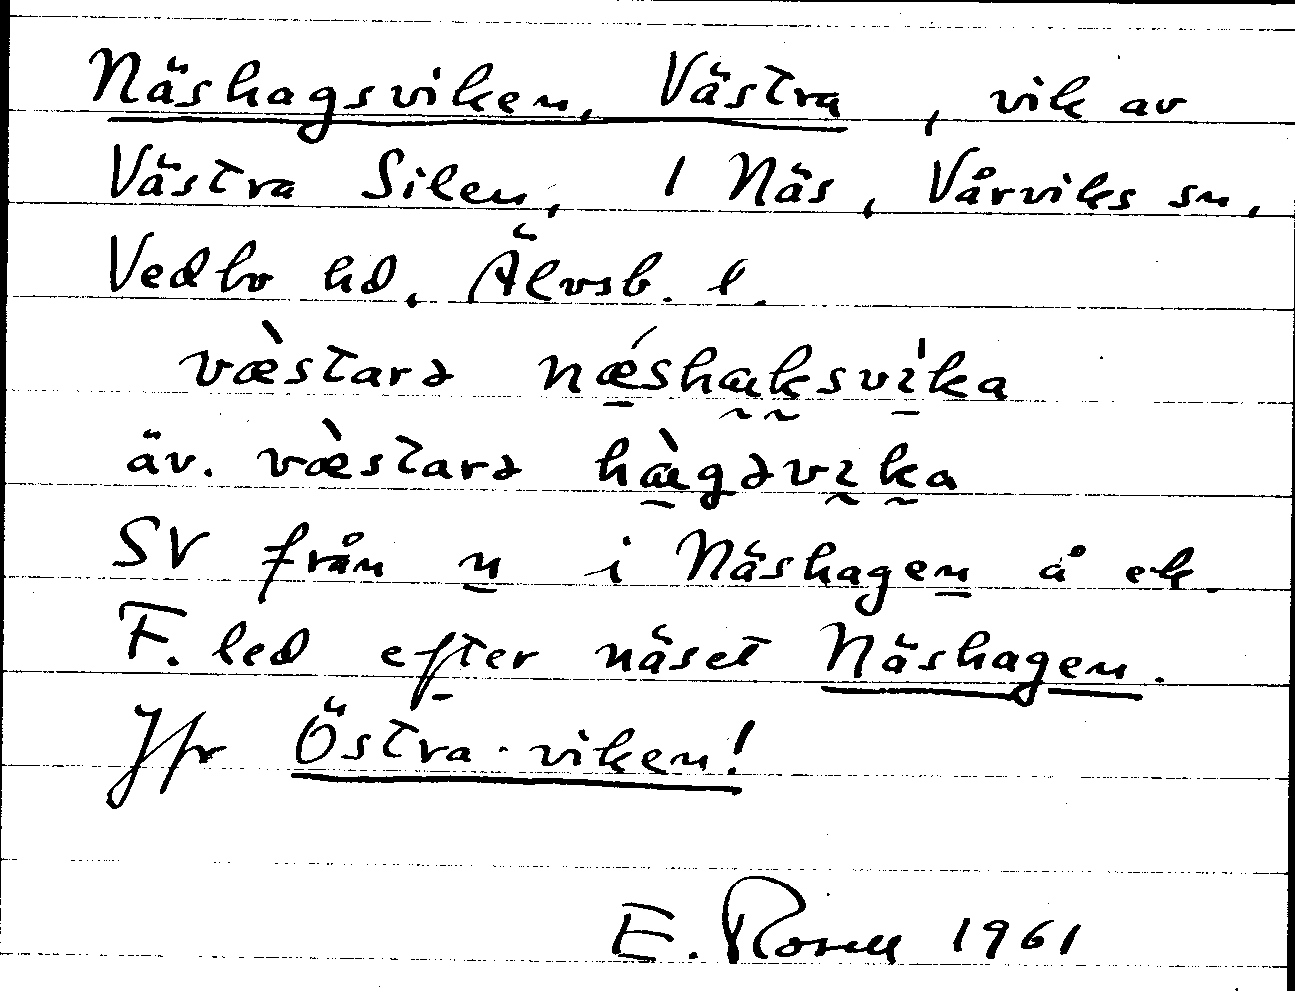 Näshagsviken, Västra, vik av
Västra Silen, 1 Näs, Vårviks sn,
Vedbo hd, Älvsb. l.
væ̀starə nǽshaksvika
äv. væ̀starə hàgəvika
SV från n i Näshagen å ek.
F. led efter näset Näshagen.
Jfr Östra -viken!
E. Rosell 1961